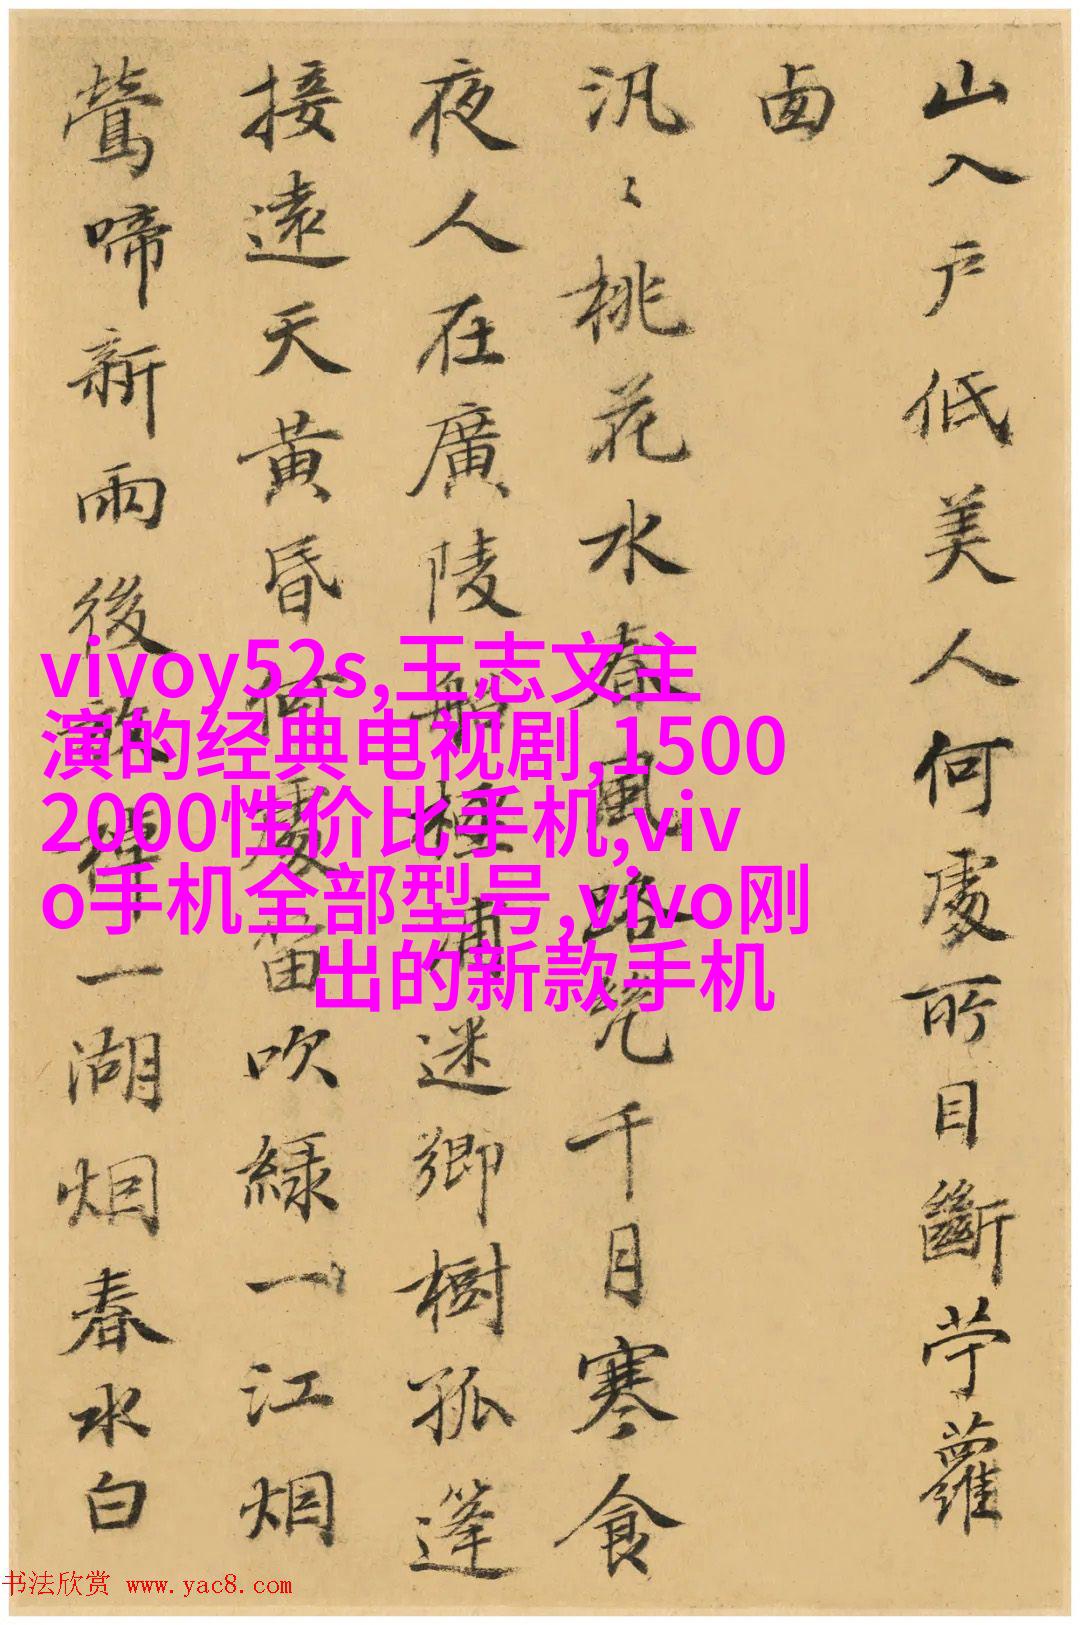 山入戶低美人何處所目斷苧蘿
卥
汎〻桃花水春風路千月寒食
夜人在廣陵船極浦迷鄉樹孤篷
接遠天黃昏何處笛吹綠一江烟
鶯啼新雨後放櫂一湖烟春水白
vivoy52s,王志文主
演的经典电视剧,1500
2000性价比手机,viv
o手机全部型号,vivo刚
出的新款手机
书法欣赏 www.yac8.com